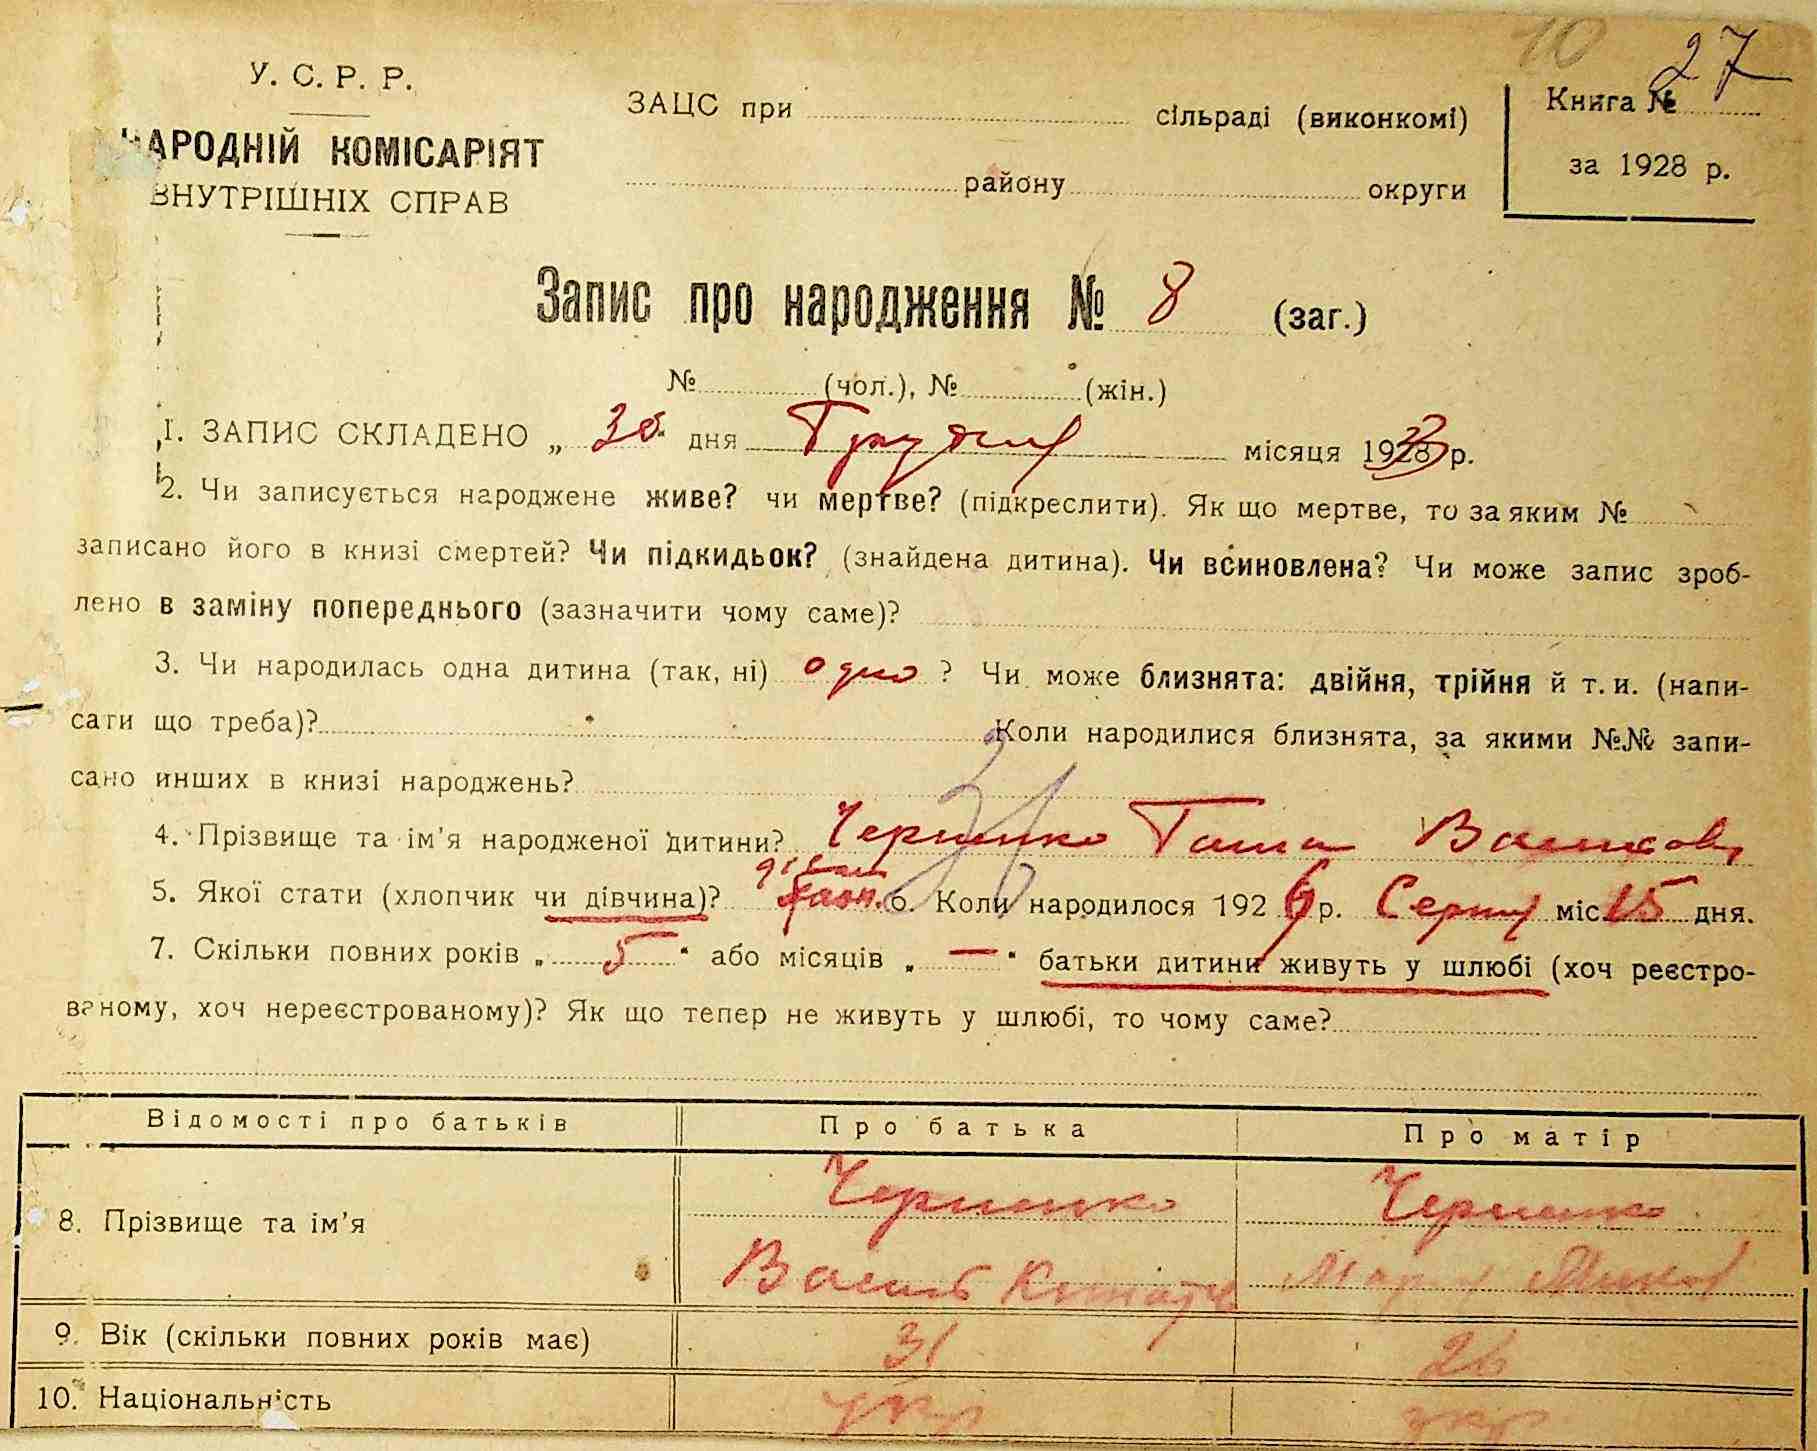 10
27
У. С. Р. Р.
НАРОДНІЙ КОМІСАРІЯТ
ВНУТРІШНІХ СПРАВ
ЗАЦС при сільраді (виконкомі)
району округи
Книга №
за 1928 р.
Запис про народження № 8 (заг.)
№ (чол.), № (жін.)
1. ЗАПИС СКЛАДЕНО „ 30 " дня Грудня місяця 1933 р.
2. Чи записується народжене живе? чи мертве? (підкреслити). Як що мертве, то за яким №
записано його в книзі смертей? Чи підкидьок? (знайдена дитина). Чи всиновлена? Чи може запис зроб-
лено в заміну попереднього (зазначити чому саме)?
3. Чи народилась одна дитина (так, ні) одно ? Чи може близнята: двійня, трійня й т. и. (напи-
сати що треба)? Коли народилися близнята, за якими №№ запи-
сано инших в книзі народжень?
4. Прізвище та ім'я народженої дитини? Черненко Ганна
5. Якої стати (хлопчик чи дівчина)? 6. Коли народилося 1926 р. Серпня міс. 15 дня.
7. Скільки повних років „ 5 " або місяців „ — " батьки дитини живуть у шлюбі (хоч реєстро-
ваному, хоч нереєстрованому)? Як що тепер не живуть у шлюбі, то чому саме?
Відомості про батьків Про батька Про матір
8. Прізвище та ім'я Черненко Черненко
Василь
9. Вік (скільки повних років має) 31 26
10. Національність укр укр